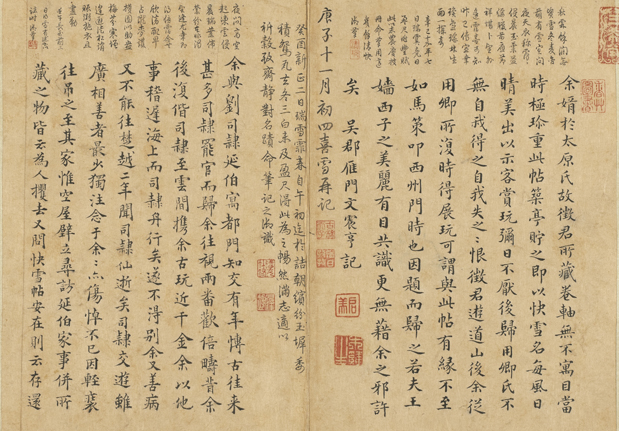 余婿於太原氏故徵君所藏卷軸無不寓目當
時極珍重此帖築亭貯之即以快雪名每風日
晴美出以示客賞玩彌日不厭後歸用卿氏不
無自我得之自我失之之恨徵君遊道山後余從
用卿所復時得展玩可謂與此帖有緣不至
如馬策叩西州門時也因題而歸之若夫王
嬙西子之美麗有目共識更無藉余之邪許
矣 吳郡雁門文震亨記
庚子十一月初四喜雪再記
癸酉新正二日瑞雪霏春自午初迄於詰朝繽紛玉墀
積驚尤玄冬三白未及盈尺得此為之暢然滿志適以
祈穀致齋靜對名蹟命筆記之
余與劉司隸延伯寓都門知交有年博古往來
甚多司隸罷官而歸余往視兩番歡倍疇昔余
後復偕司隸至雲間攜余古玩近千金余以他
事稽遲海上而司隸舟行矣遂不得別余又善病
又不能往楚越二年聞司隸仙逝矣司隸交遊雖
廣相善者最少獨注念于余余亦傷悼不已因輕裘
往吊之至其家惟空屋壁立尋訪延伯家事併所
藏之物皆云為人攫去又問快雪帖安在則云存還